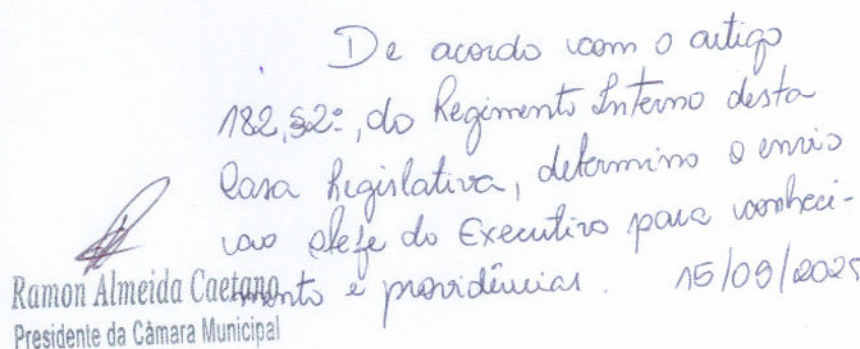 De acordo com o artigo
182, §2º, do Regimento Interno desta
Casa Legislativa, determino o envio
ao Chefe do Executivo para conheci-
mento e providências. 15/09/2025
Ramon Almeida Caetano
Presidente da Câmara Municipal